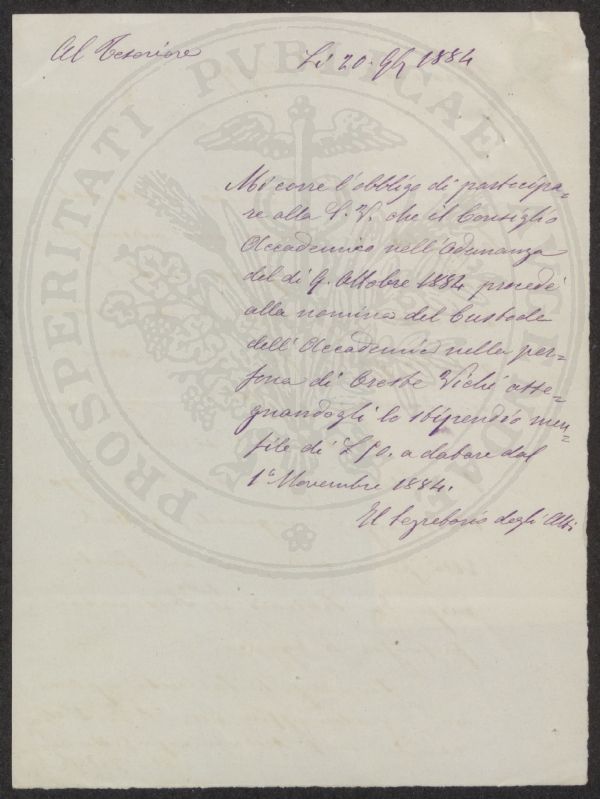 Al Tesoriere
Li 20. 9b 1884
Mi corre l'obbligo di partecipa=
re alla S. V. che il Consiglio
Accademico nell'Adunanza
del dì 9. Ottobre 1884 procedé
alla nomina del Custode
dell'Accademia nella per=
sona di Oreste Vichi asse=
gnandogli lo stipendio men=
sile di L 50. a datare dal
1° Novembre 1884.
Il Segretario degli Atti
PROSPERITATI PVBLICAE AVGENDAE